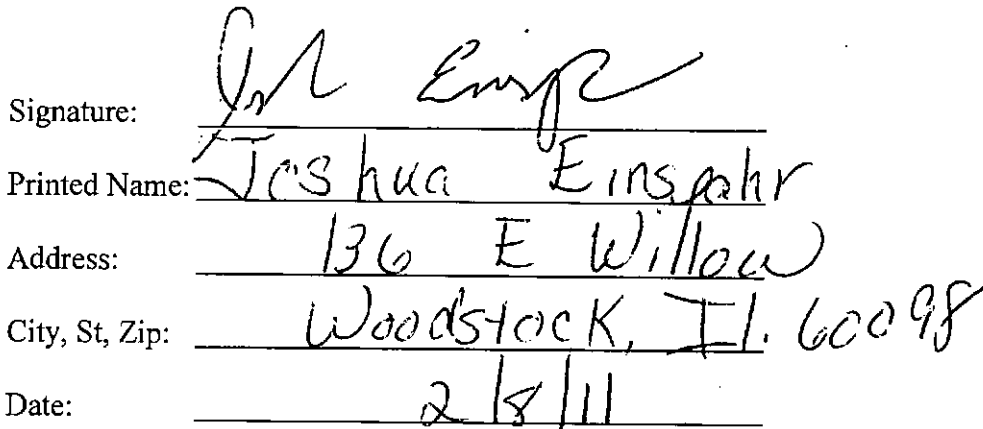 Signature: Josh Einspr
Printed Name: Joshua Einspahr
Address: 136 E Willow
City, St, Zip: Woodstock, Il. 60098
Date: 2/8/11